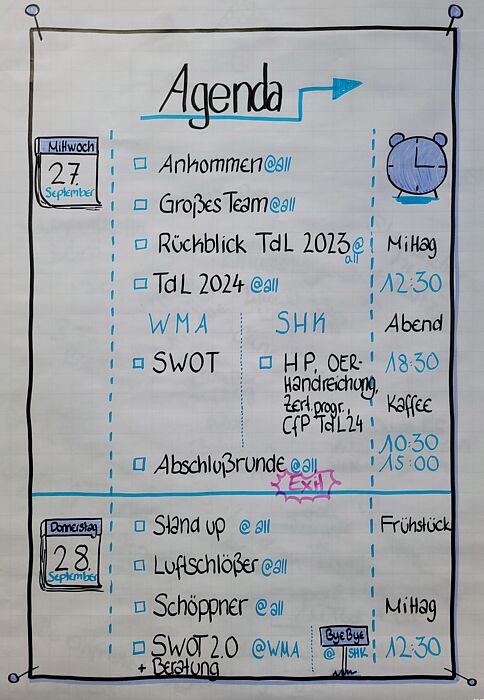 Agenda
Mittwoch
27.
September
Ankommen @all
Großes Team @all
Rückblick TdL 2023 @
all
TdL 2024 @all
WMA
SWOT
SHK
HP, OER-
Handreichung,
Zert.progr.,
CfP TdL24
Abschlußrunde @all
Exit
Mittag
12:30
Abend
18:30
Kaffee
10:30
15:00
Donnerstag
28.
September
Stand up @all
Luftschlößer @all
Schöppner @all
SWOT 2.0 @WMA
+ Beratung
ByeBye
@ SHK
Frühstück
Mittag
12:30